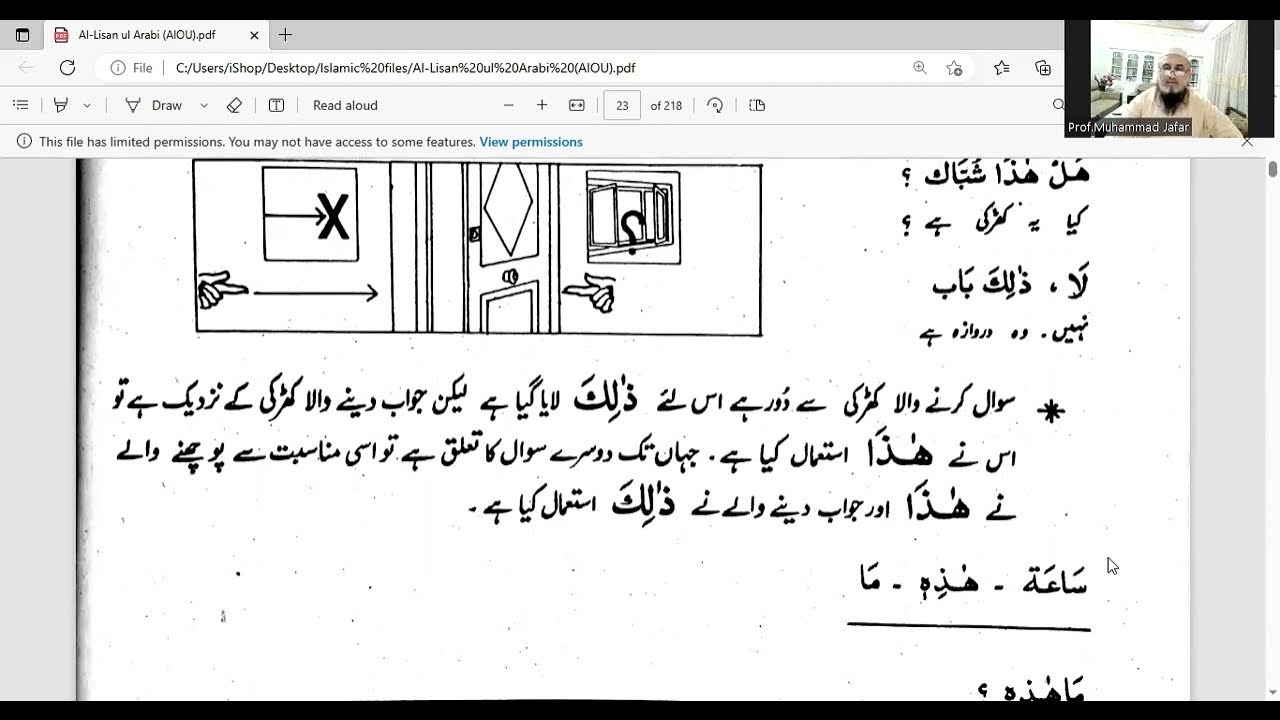 Al-Lisan ul Arabi (AIOU).pdf
File
C:/Users/iShop/Desktop/Islamic%20files/Al-Lisan%20ul%20Arabi%20(AIOU).pdf
Draw
Read aloud
23
of 218
Prof.Muhammad Jafar
This file has limited permissions. You may not have access to some features. View permissions
هَلْ هٰذَا شُبَّاك ؟
کیا یہ کھڑکی ہے ؟
X
?
لَا ، ذٰلِكَ بَاب
نہیں۔ وہ دروازہ ہے
* سوال کرنے والا کھڑکی سے دُور ہے اس لئے ذٰلِكَ لایا گیا ہے لیکن جواب دینے والا کھڑکی کے نزدیک ہے تو
اس نے هٰذَا استعمال کیا ہے۔ جہاں تک دوسرے سوال کا تعلق ہے تو اسی مناسبت سے پوچھنے والے
نے هٰذَا اور جواب دینے والے نے ذٰلِكَ استعمال کیا ہے۔
سَاعَة - هٰذِهٖ - مَا
مَا هٰذِهٖ ؟